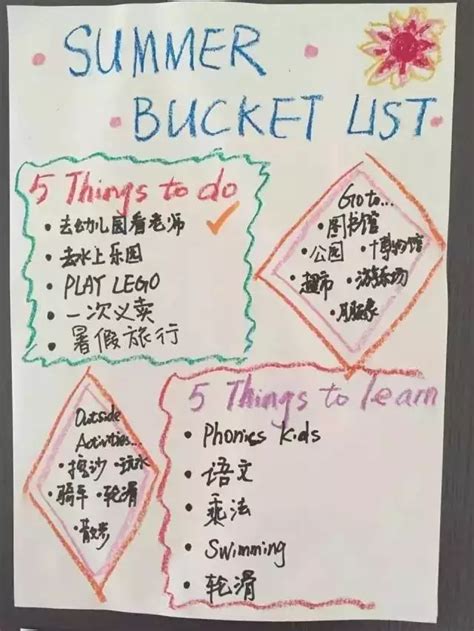 SUMMER
BUCKET LIST
5 Things to do
• 去幼儿园看老师
• 去水上乐园
• PLAY LEGO
• 一次义卖
• 暑假旅行
Go to...
• 图书馆
• 公园 • 博物馆
• 超市 • 游乐场
Outside
Activities...
• 挖沙 • 玩水
• 骑车 • 轮滑
• 散步
5 Things to learn
• Phonics Kids
• 语文
• 乘法
• Swimming
• 轮滑